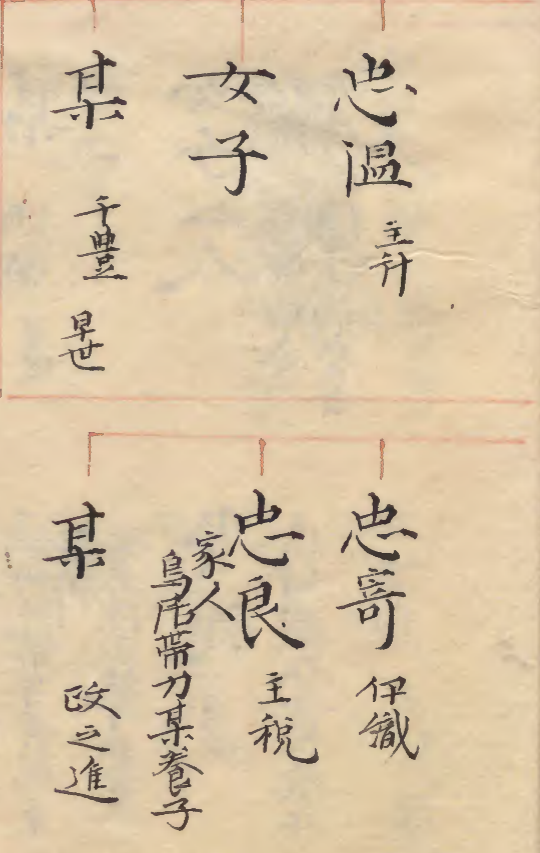 忠温 主計
女子
某 千豊 早世
忠寄 伊織
忠良 主税
家人
鳥居帯刀某養子
某 政之進